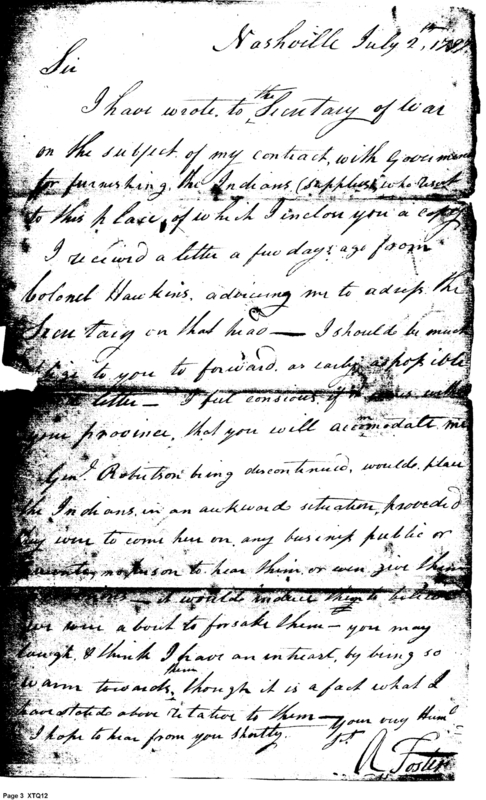 Nashville July 2th, 1797.
Sir
I have wrote to the Secretary of War
on the subject of my contract with Government
for furnishing the Indians (supplies) who resort
to this place, of which I inclose you a copy
I received a letter a few days ago from
Colonel Hawkins, adviceing me to adress the
Secretary on that head — I should be much
to you to forward, as early as possible
letter — I feel conscious, if it with
your province, that you will acomodate me
Genl. Robertson being discontinued, would place
the Indians, in an aukward situation, proveded
any were to come here on any business public or
no person to hear them, or even give them
— it would induce them to believe
we were about to forsake them — you may
laugh, & think I have an intrast, by being so
warm towards them, though it is a fact what I
have stated above relative to them —
I hope to hear from you shortly. your very Humb.
St.
R Foster
Page 3 XTQ12